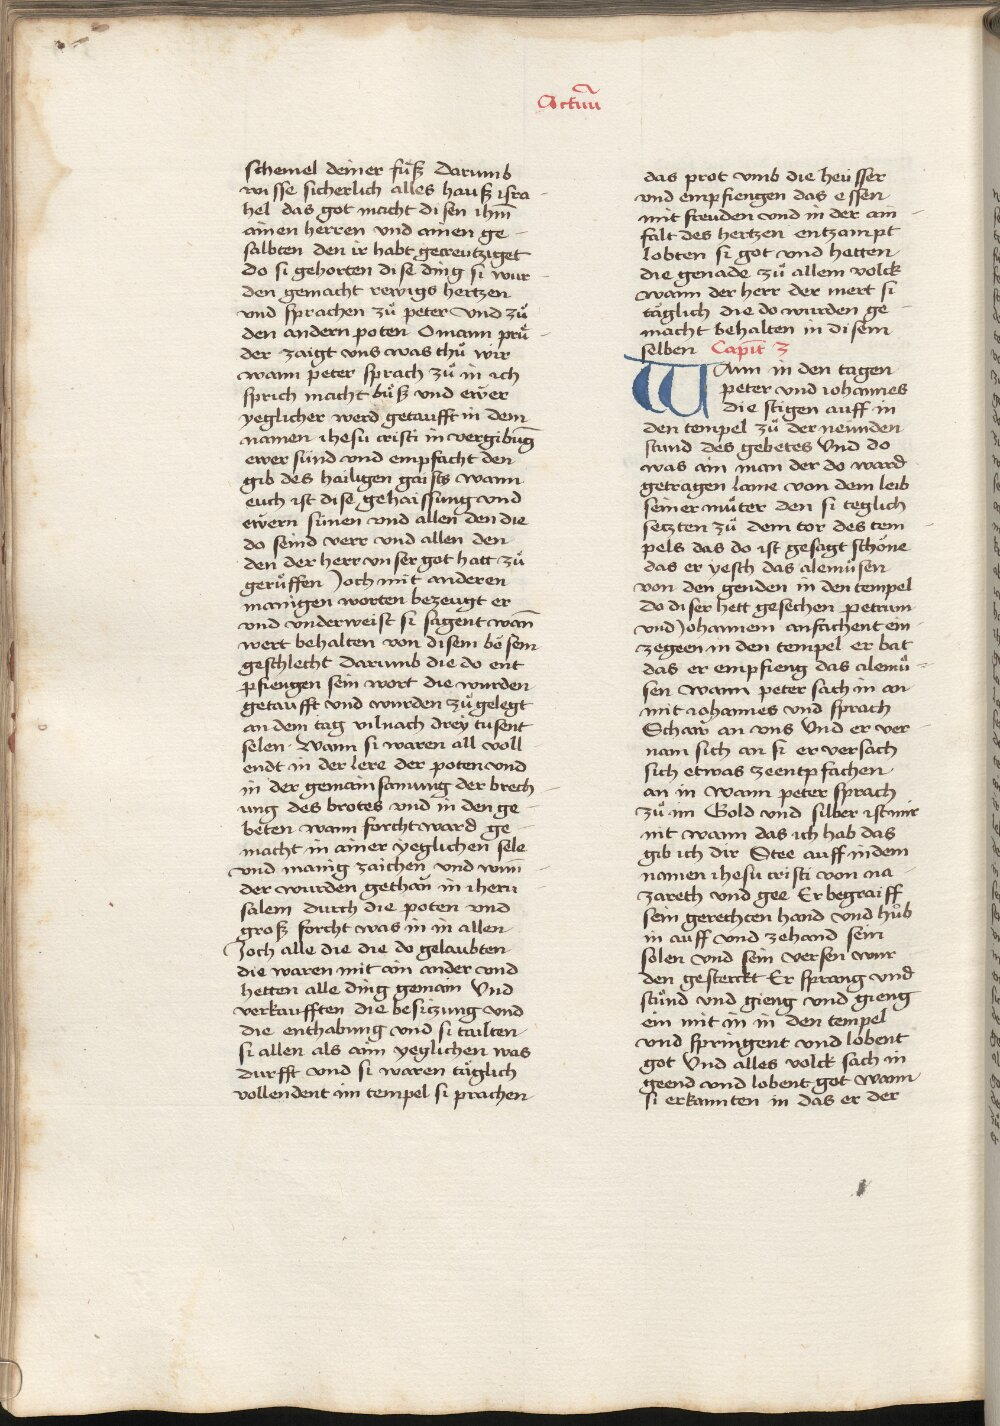 Actuu̅
schemel deiner fuͤß Darumb
wisse sicherlich alles hauß isra
hel das got macht disen ihm̅
ainen herren vnd ainen ge
salbten den ir habt gecreutziget
do si gehorten dise ding si wur
den gemacht rewigs hertzen
vnd sprachen zuͦ peter vnd zuͦ
den andern poten O mann pruͤ
der zaigt vns was thuͦ wir
wann peter sprach zuͦ in ich
sprich macht buͦß vnd ewer
yeglicher werd getaufft in dem
namen ihesu cristi in vergibug̅
ewer sünd vnd empfacht den
gib des hailigen gaists wann
euch ist dise gehaissung vnd
ewern sünen vnd allen den die
do seind verr vnd allen den
den der herr vnser got hatt zuͦ
geruͤffen Joch mit anderen
manigen worten bezeugt er
vnd vnderweist si sagent wan̅
wert behalten von disem boͤsem
geschlecht Darumb die do ent
pfiengen sein wort die wurden
getaufft vnd wurden zuͦgelegt
an dem tag vilnach drey tusent
selen. Wann si waren all voll
endt in der lere der poten vnd
in der gemainsamung der brech
ung des brotes vnd in den ge
beten wann forcht ward ge
macht in ainer yeglichen sele
vnd manig zaichen vnd wun̅
der wurden gethan in iheru
salem durch die poten vnd
groß forcht was in in allen
Joch alle die die do gelaubten
die waren mit ain ander vnd
hetten alle ding gemain Vnd
verkaufften die besiczung vnd
die enthabung vnd si tailten
si allen als aim yeglichen was
durfft vnd si waren taͤglich
vollendent im tempel si prachen
das prot vmb die heüsser
vnd empfiengen das essen
mit freuden vnd in der ain
falt des hertzen entzampt
lobten si got vnd hetten
die genade zuͦ allem volck
wann der herr der mert si
taͤglich die do wurden ge
macht behalten in disem
selben Capit̅ 3
Wann in den tagen
peter vnd iohannes
die stigen auff in
den tempel zuͦ der neünden
stund des gebetes Vnd do
was ain man der do ward
getragen lame von dem leib
seiner muͦter den si teglich
seczten zuͦ dem tor des tem
pels das do ist gesagt schoͤne
das er yesch das alemuͦsen
von den genden in den tempel
do diser hett gesechen petrum
vnd Johannem anfachent ein
zegeen in den tempel er bat
das er empfieng das alemuͦ
sen Wann peter sach in an
mit iohannes vnd sprach
Schaw an vns Vnd er ver
nam sich an si er versach
sich etwas zeentpfachen
an in wann peter sprach
zuͦ im Gold vnd silber ist mir
nit wann das ich hab das
gib ich dir Stee auff in dem
namen ihesu cristi von na
zareth vnd gee Er begraiff
sein gerechten hand vnd huͦb
in auff vnd zehand sein
solen vnd sein versen wur
den gesterckt Er sprang vnd
stuͦnd vnd gieng vnd gieng
ein mit in in den tempel
vnd springent vnd lobent
got Vnd alles volck sach in
geend vnd lobent got wann
si erkannten in das er der